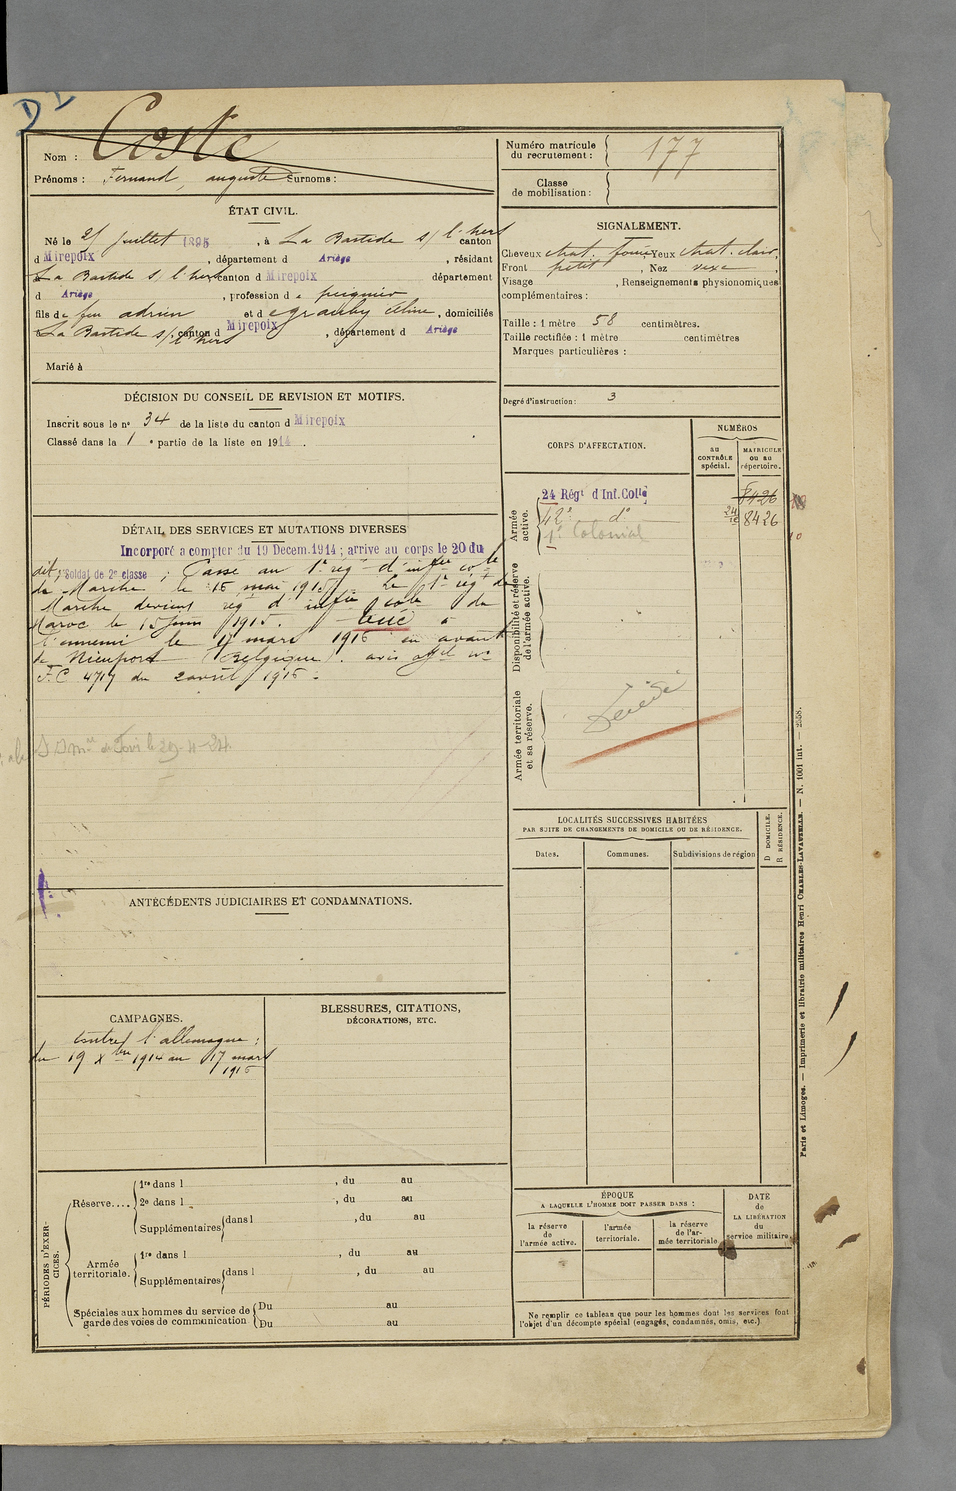 D 2
Nom : Coste
Prénoms : Fernand, auguste Surnoms :
Numéro matricule du recrutement : 177
Classe de mobilisation :
ÉTAT CIVIL.
Né le 25 juillet 1895, à La Bastide s/ l'hers canton
d Mirepoix, département d Ariège, résidant
La Bastide s/ l'hers canton d Mirepoix département
d Ariège, profession de peignier
fils de feu adrien et de egraulby Céline, domiciliés
La Bastide s/ l'hers, canton d Mirepoix, département d Ariège
Marié à
SIGNALEMENT.
Cheveux chat. foncé Yeux chat. clair,
Front petit, Nez vexe,
Visage , Renseignements physionomiques
complémentaires :
Taille : 1 mètre 58 centimètres.
Taille rectifiée : 1 mètre centimètres
Marques particulières :
Degré d'instruction : 3
DÉCISION DU CONSEIL DE REVISION ET MOTIFS.
Inscrit sous le nº 34 de la liste du canton d Mirepoix
Classé dans la 1 e partie de la liste en 1914.
CORPS D'AFFECTATION.
NUMÉROS
au CONTRÔLE spécial.
MATRICULE ou au répertoire.
Armée active.
24 Régt d'Inf. Colle 8426
42e dº 24/1c 8426
1r Colonial
Disponibilité et réserve de l'armée active.
Armée territoriale et sa réserve.
Décédé
DÉTAIL DES SERVICES ET MUTATIONS DIVERSES
Incorporé a compter du 19 Decem. 1914 ; arrive au corps le 20 du
dit, Soldat de 2e classe ; Passé au 1er régt d'inffie cole
de Marche le 15 mai 1915. Le 1er régt de
Marche devient régt d'inffie cole du
Maroc le 15 juin 1915. Tué à
l'ennemi le 17 mars 1916 en avant
de Nieuport (Belgique). avis offel nº
F.C 4717 du 2 avril 1916.
LOCALITÉS SUCCESSIVES HABITÉES
PAR SUITE DE CHANGEMENTS DE DOMICILE OU DE RÉSIDENCE.
Dates.
Communes.
Subdivisions de région
D DOMICILE.
R RÉSIDENCE.
ANTÉCÉDENTS JUDICIAIRES ET CONDAMNATIONS.
CAMPAGNES.
Contre l'allemagne :
du 19 Xbre 1914 au 17 mars
1916
BLESSURES, CITATIONS,
DÉCORATIONS, ETC.
PÉRIODES D'EXERCICES.
Réserve....
1re dans l , du au
2e dans l , du au
Supplémentaires dans l , du au
Armée territoriale.
1re dans l , du au
Supplémentaires dans l , du au
Spéciales aux hommes du service de garde des voies de communication
Du au
Du au
ÉPOQUE
A LAQUELLE L'HOMME DOIT PASSER DANS :
la réserve de l'armée active.
l'armée territoriale.
la réserve de l'armée territoriale
DATE de LA LIBÉRATION du service militaire.
Ne remplir ce tableau que pour les hommes dont les services font
l'objet d'un décompte spécial (engagés, condamnés, omis, etc.)
Paris et Limoges. — Imprimerie et librairie militaires Henri CHARLES-LAVAUZELLE. — N. 1001 int. — 2558.